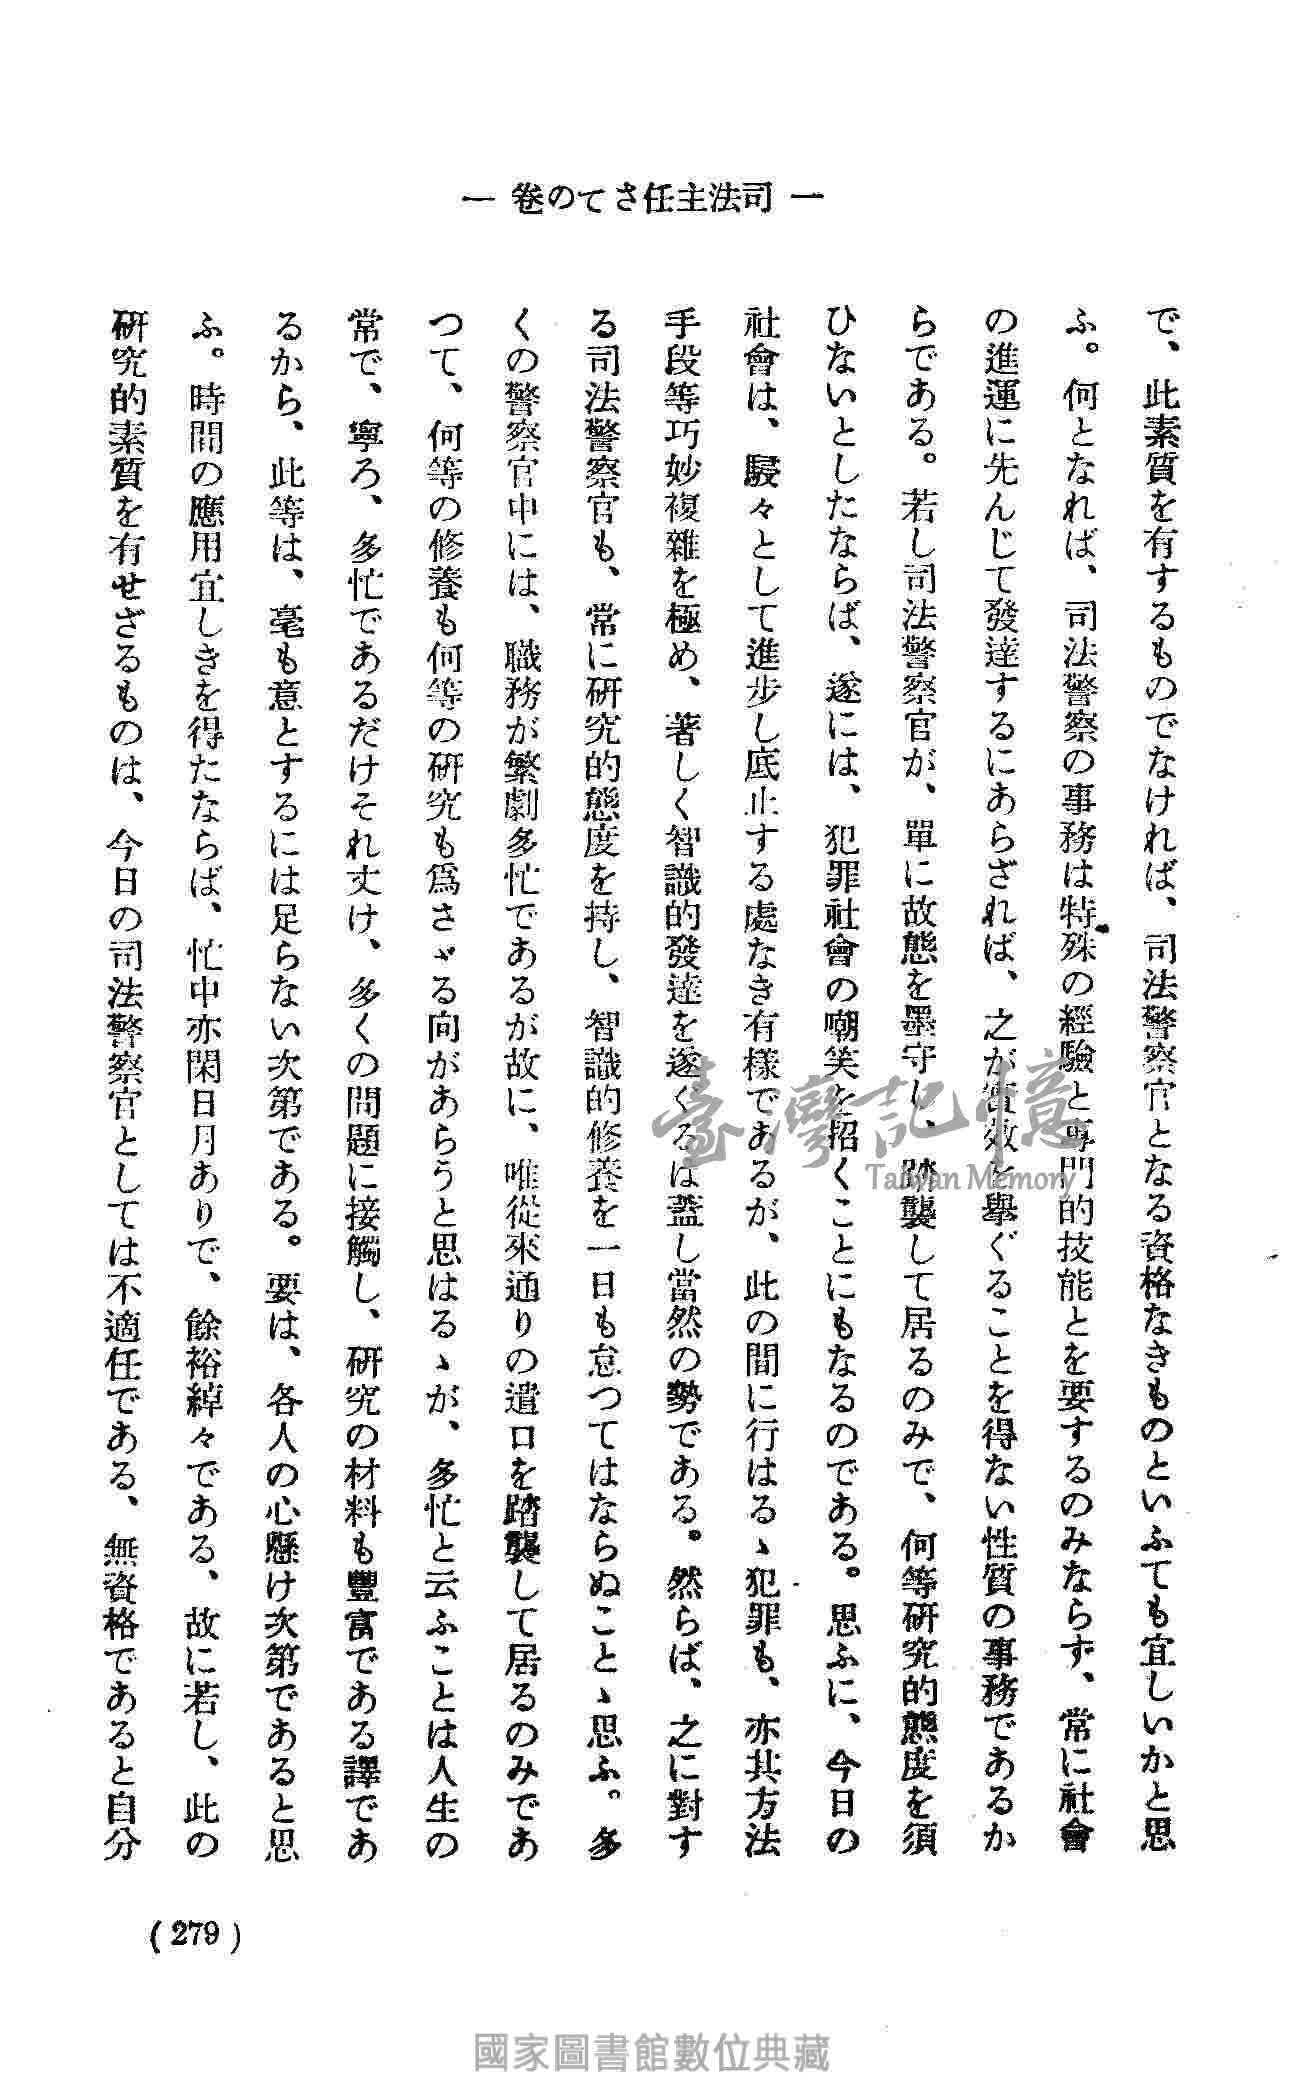 一 司法主任さての卷 一
で、此素質を有するものでなければ、司法警察官となる資格なきものといふても宜しいかと思
ふ。何となれば、司法警察の事務は特殊の經驗と專門的技能とを要するのみならず、常に社會
の進運に先んじて發達するにあらざれば、之が實效を擧ぐることを得ない性質の事務であるか
らである。若し司法警察官が、單に故態を墨守し、踏襲して居るのみで、何等硏究的態度を須
ひないとしたならば、遂には、犯罪社會の嘲笑を招くことにもなるのである。思ふに、今日の
社會は、駸々として進步し底止する處なき有樣であるが、此の間に行はるゝ犯罪も、亦其方法
手段等巧妙複雜を極め、著しく智識的發達を遂ぐるは蓋し當然の勢である。然らば、之に對す
る司法警察官も、常に硏究的態度を持し、智識的修養を一日も怠つてはならぬことゝ思ふ。多
くの警察官中には、職務が繁劇多忙であるが故に、唯從來通りの遣口を踏襲して居るのみであ
つて、何等の修養も何等の硏究も爲さゞる向があらうと思はるゝが、多忙と云ふことは人生の
常で、寧ろ、多忙であるだけそれ丈け、多くの問題に接觸し、硏究の材料も豐富である譯であ
るから、此等は、毫も意とするには足らない次第である。要は、各人の心懸け次第であると思
ふ。時間の應用宜しきを得たならば、忙中亦閑日月ありで、餘裕綽々である、故に若し、此の
硏究的素質を有せざるものは、今日の司法警察官としては不適任である、無資格であると自分
(279)
臺灣記憶
Taiwan Memory
國家圖書館數位典藏